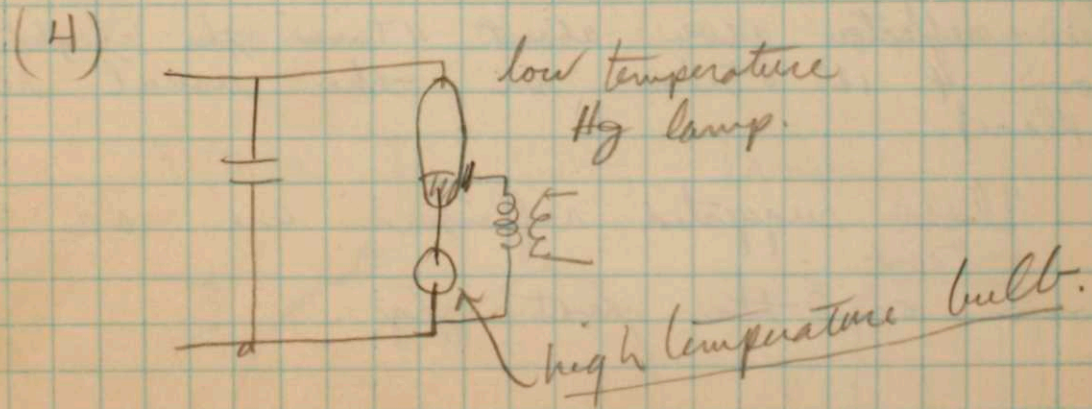 (4)
low temperature
Hg lamp.
high temperature bulb.